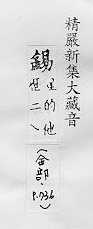 精嚴新集大藏音
錫
的他
二
(金部·P.036)